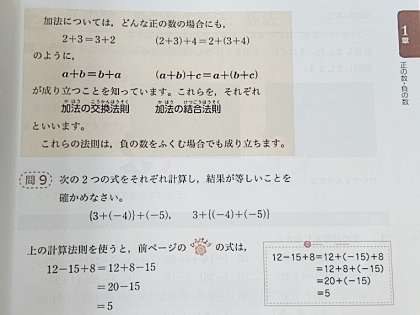 加法については，どんな正の数の場合にも，
2+3=3+2　(2+3)+4=2+(3+4)
のように，
a+b=b+a　(a+b)+c=a+(b+c)
が成り立つことを知っています。これらを，それぞれ
加法の交換法則　加法の結合法則
といいます。
これらの法則は，負の数をふくむ場合でも成り立ちます。
1章
正の数・負の数
問9　次の2つの式をそれぞれ計算し，結果が等しいことを
確かめなさい。
{3+(−4)}+(−5)，　3+{(−4)+(−5)}
上の計算法則を使うと，前ページの の式は，
12−15+8=12+8−15
=20−15
=5
12−15+8=12+(−15)+8
=12+8+(−15)
=20+(−15)
=5